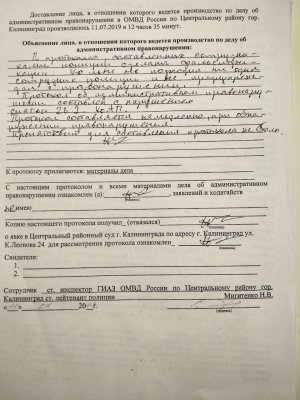 Доставление лица, в отношении которого ведется производство по делу об
административном правонарушении в ОМВД России по Центральному району гор.
Калининград произведилось 11.07.2019 в 12 часов 35 минут.
Объяснение лица, в отношении которого ведется производство по делу об
административном правонарушении:
В протоколе составленным сотрудни-
ками полиции сделаны
ко мне не подходил ни один
сотрудник полиции и не
Протокол об административном правонару-
шении составлен с нарушением
статьи 28.2 КоАП.
Протокол составляется немедленно при обна-
ружении правонарушения.
Препятствий для составления протокола не было.
К протоколу прилагаются: материалы дела
С настоящим протоколом и всеми материалами дела об административном
правонарушении ознакомлен (а): , заявлений и ходатайств
не имею
Копию настоящего протокола получил (отказался)
(подпись)
о явке в Центральный районный суд г. Калининграда по адресу г. Калининград ул.
К.Леонова 24 для рассмотрения протокола ознакомлен
(подпись)
Свидетели:
1.
2.
Сотрудник ст. инспектор ГИАЗ ОМВД России по Центральному району гор.
Калининград ст. лейтенант полиции Мигитенко Н.В.
(подпись)